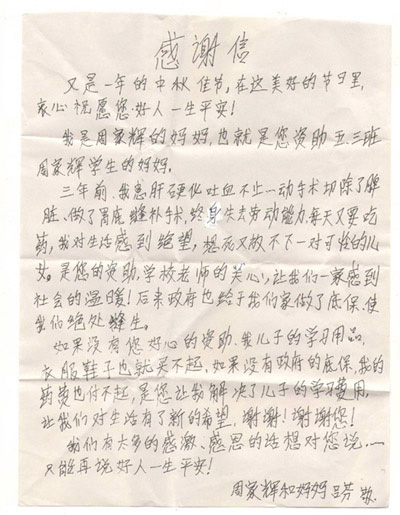 感谢信
又是一年的中秋佳节,在这美好的节日里,
衷心祝愿您好人一生平安!
我是周家辉的妈妈,也就是您资助五.三班
周家辉学生的妈妈。
三年前,我患肝硬化吐血不止一动手术切除了脾
脏、做了胃底缝扑手术,终身失去劳动能力,每天又要吃
药,我对生活感到绝望,想死又放不下一对可怜的儿
女。是您的资助,学校老师的关心,让我们一家感到
社会的温暖!后来政府也给于我们家做了底保,使
我们绝处缝生。
如果没有您好心的资助、我儿子的学习用品,
衣服鞋子也就买不起,如果没有政府的底保,我的
药费也付不起,是您让我解决了儿子的学习费用,
让我们对生活有了新的希望,谢谢!谢谢您!
我们有太多的感激、感恩的话想对您说……
只能再说好人一生平安!
周家辉和妈妈 吕芬 敬